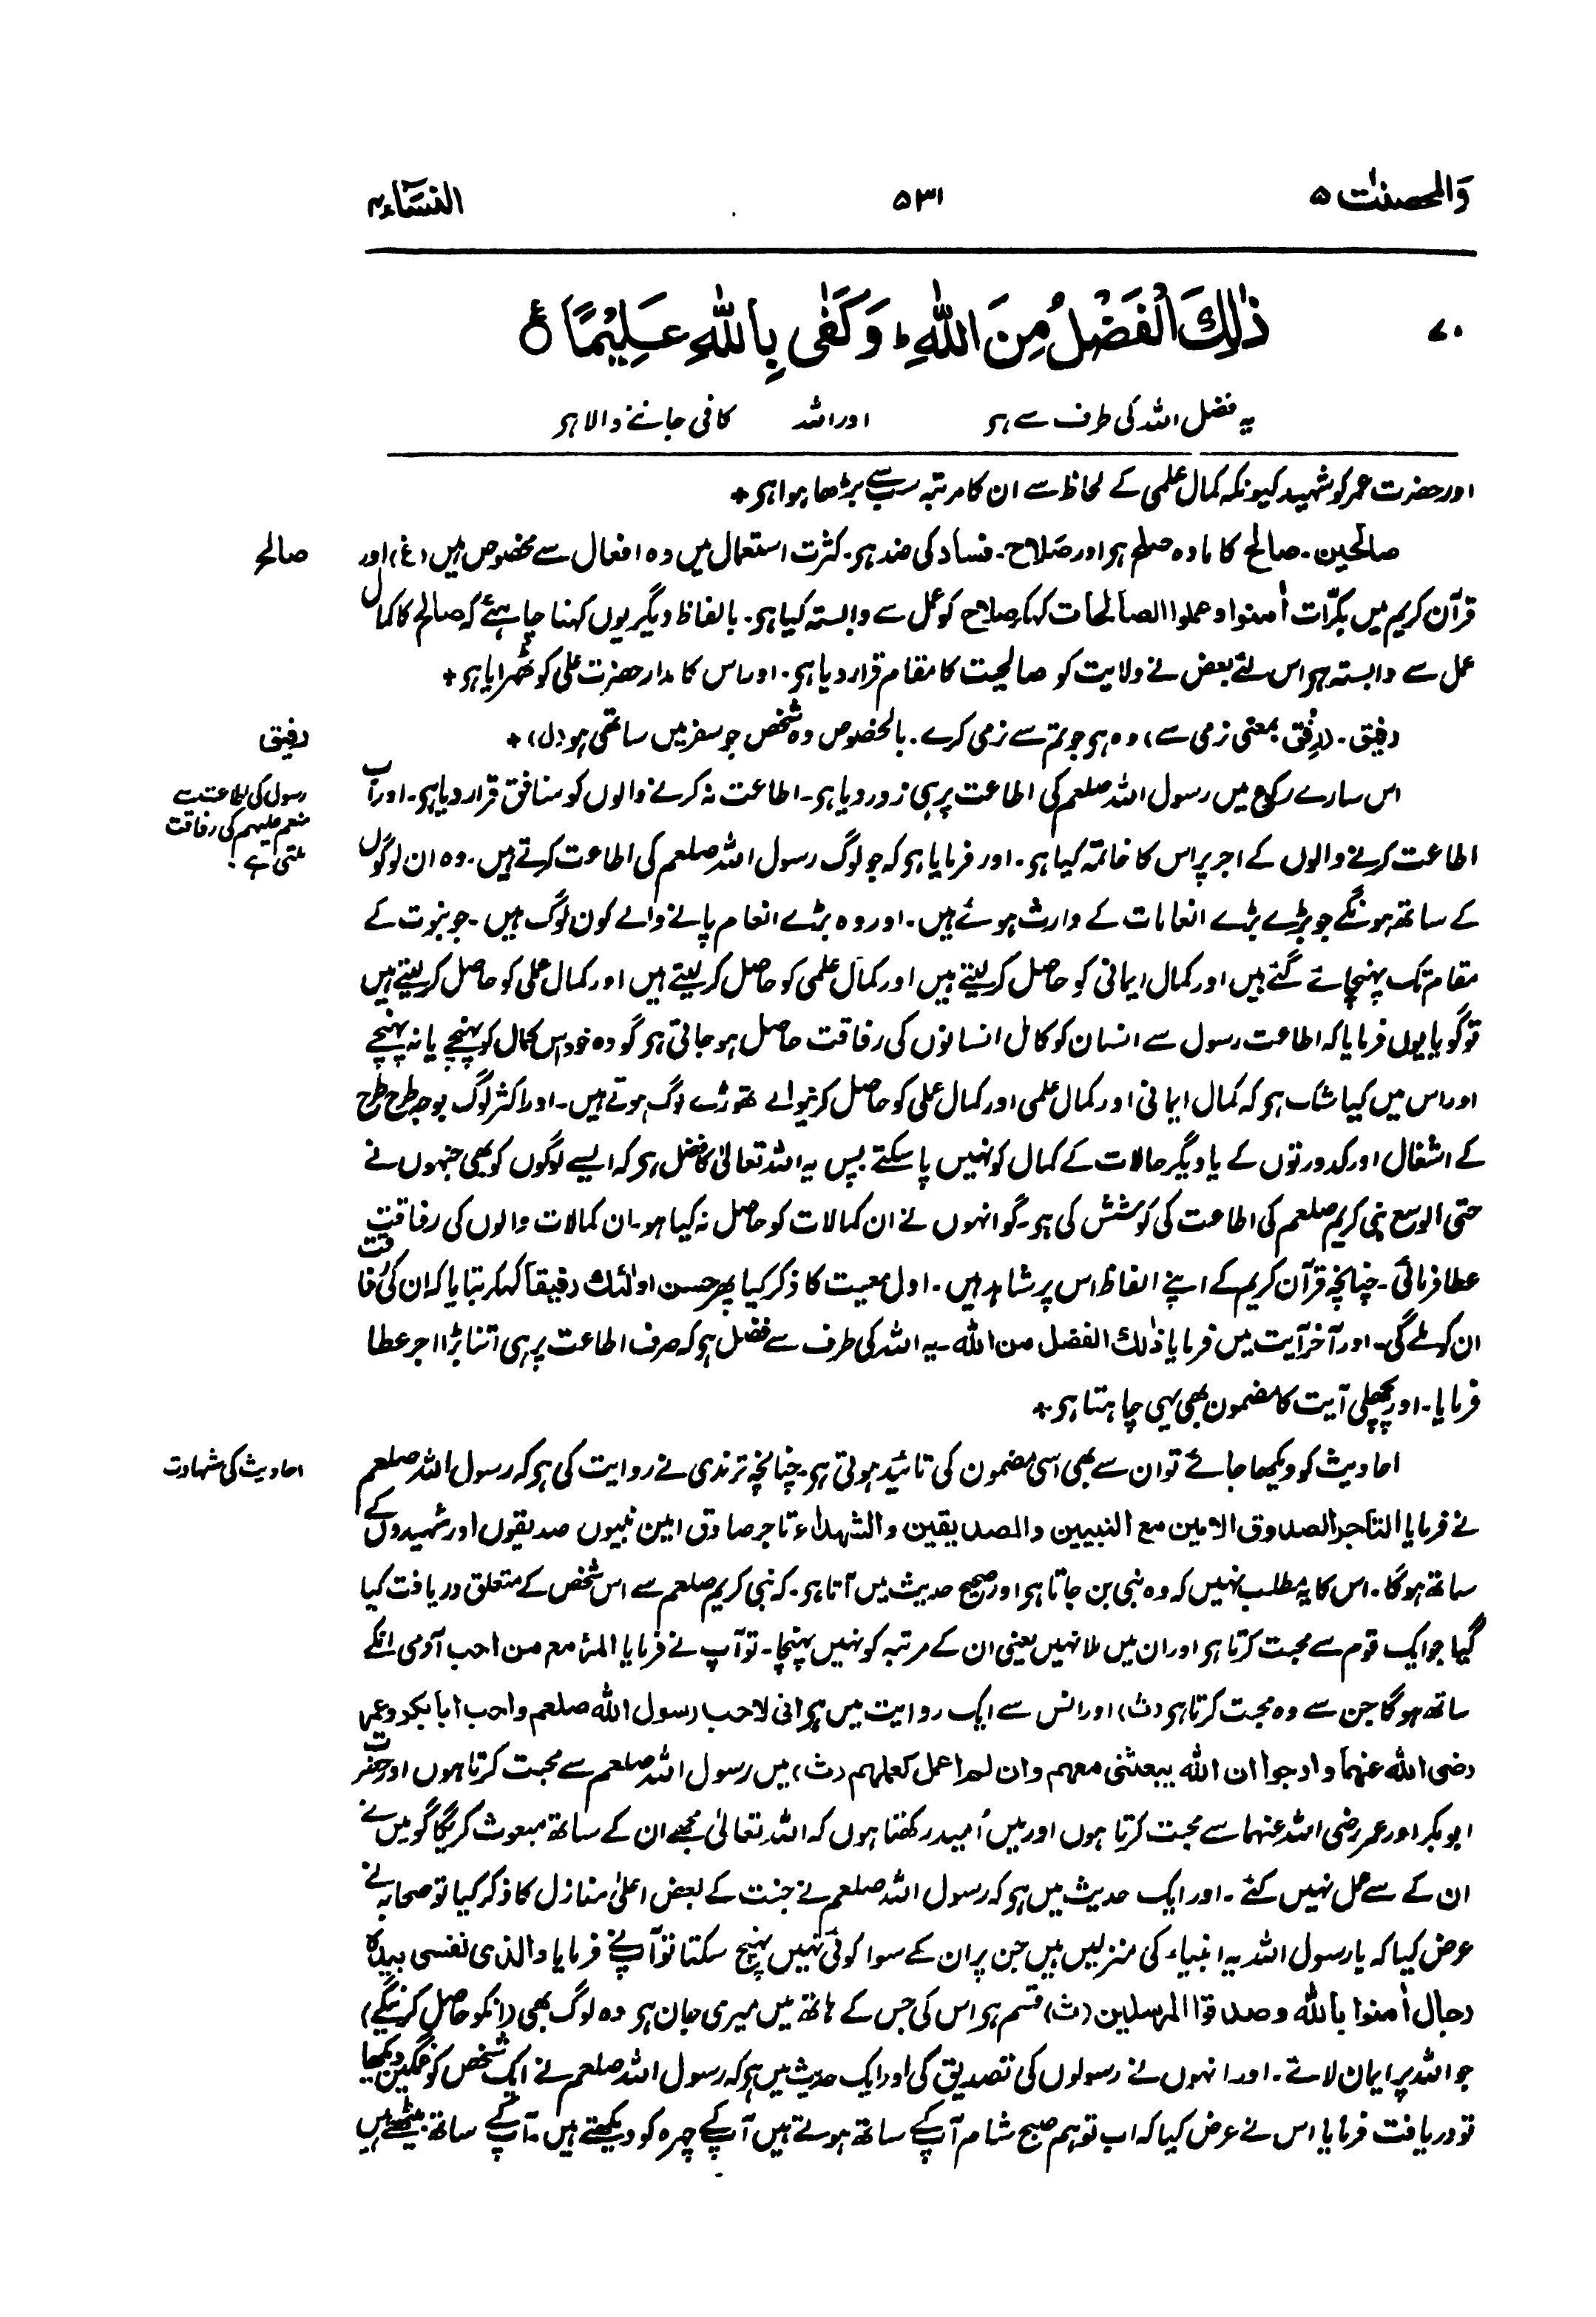 وَالمحصنٰت ۵
۵۳۱
النسَآء ۴
۷۰
ذٰلِكَ الْفَضْلُ مِنَ اللّٰهِ ؕ وَكَفٰى بِاللّٰهِ عَلِيْمًا ۝ ع
یہ فضل اللہ کی طرف سے ہو اور اللہ کافی جاننے والا ہو
اور حضرت عمر کو شہید کیونکہ کمال علمی کے لحاظ سے ان کا مرتبہ سب سے بڑھا ہوا ہو+
صالحین۔ صالح کا مادہ صلح ہو اور صَلاح۔ فساد کی ضد ہو۔ کثرت استعمال میں وہ افعال سے مخصوص ہیں (غ) اور
صالح
قرآن کریم میں بکرّات اٰمنوا وعملوا الصالحات کہکر صلاح کو عمل سے وابستہ کیا ہو۔ بالفاظ دیگر یوں کہنا چاہئے کہ صالح کا کمال
عمل سے وابستہ ہو اس لئے بعض نے ولایت کو صالحیت کا مقام قرار دیا ہو۔ اور اس کا مدار حضرت علی کو ٹھہرایا ہو+
رفیق۔ (رِفق بمعنی نرمی سے) وہ ہو جو تم سے نرمی کرے۔ بالخصوص وہ شخص جو سفر میں ساتھی ہو (ل)+
رفیق
اس سارے رکوع میں رسول اللہ صلعم کی اطاعت پر ہی زور دیا ہو۔ اطاعت نہ کرنے والوں کو منافق قرار دیا ہو۔ اور اب
رسول کی اطاعت سے
منعم علیہم کی رفاقت
ملتی ہے۔
اطاعت کرنے والوں کے اجر پر اس کا خاتمہ کیا ہو۔ اور فرمایا ہو کہ جو لوگ رسول اللہ صلعم کی اطاعت کرتے ہیں۔ وہ ان لوگوں
کے ساتھ ہونگے جو بڑے بڑے انعامات کے وارث ہوئے ہیں۔ اور وہ بڑے انعام پانے والے کون لوگ ہیں۔ جو نبوت کے
مقام تک پہنچائے گئے ہیں اور کمال ایمانی کو حاصل کر لیتے ہیں اور کمال علمی کو حاصل کر لیتے ہیں اور کمال عملی کو حاصل کر لیتے ہیں
تو گویا یوں فرمایا کہ اطاعت رسول سے انسان کو کامل انسانوں کی رفاقت حاصل ہو جاتی ہو گو وہ خود اس کمال کو پہنچے یا نہ پہنچے
اور اس میں کیا شک ہو کہ کمال ایمانی اور کمال علمی اور کمال عملی کو حاصل کرنیوالے تھوڑے لوگ ہوتے ہیں۔ اور اکثر لوگ بوجہ طرح طرح
کے اشغال اور کدورتوں کے یا دیگر حالات کے کمال کو نہیں پا سکتے پس یہ اللہ تعالیٰ کا فضل ہو کہ ایسے لوگوں کو بھی جنہوں نے
حتی الوسع نبی کریم صلعم کی اطاعت کی کوشش کی ہو۔ گو انہوں نے ان کمالات کو حاصل نہ کیا ہو۔ ان کمالات والوں کی رفاقت
عطا فرمائی۔ چنانچہ قرآن کریم کے اپنے الفاظ اس پر شاہد ہیں۔ اول معیت کا ذکر کیا پھر حسن اولٰئک رفیقاً کہکر بتایا کہ ان کی رفاقت
ان کو ملے گی۔ اور آخر آیت میں فرمایا ذٰلك الفضل من اللہ۔ یہ اللہ کی طرف سے فضل ہو کہ صرف اطاعت پر ہی اتنا بڑا اجر عطا
فرمایا۔ اور پچھلی آیت کا مضمون بھی یہی چاہتا ہو+
احادیث کو دیکھا جائے تو ان سے بھی اسی مضمون کی تائید ہوتی ہو۔ چنانچہ ترمذی نے روایت کی ہو کہ رسول اللہ صلعم
احادیث کی شہادت
نے فرمایا التاجر الصدوق الامین مع النبیین والصدیقین والشہداء تاجر صادق امین نبیوں صدیقوں اور شہیدوں کے
ساتھ ہوگا۔ اس کا یہ مطلب نہیں کہ وہ نبی بن جاتا ہو اور صحیح حدیث میں آتا ہو۔ کہ نبی کریم صلعم سے اس شخص کے متعلق دریافت کیا
گیا جو ایک قوم سے محبت کرتا ہو اور ان میں ملا نہیں یعنی ان کے مرتبہ کو نہیں پہنچا۔ تو آپ نے فرمایا المرء مع من احب آدمی انکے
ساتھ ہوگا جن سے وہ محبت کرتا ہو (ث) اور انس سے ایک روایت میں ہو انی لاحب رسول اللہ صلعم واحب ابابکر وعمر
رضی اللہ عنہما وارجوا ان اللہ یبعثنی معہم وان لم اعمل کعملہم (ث) میں رسول اللہ صلعم سے محبت کرتا ہوں اور حضرت
ابوبکر اور عمر رضی اللہ عنہما سے محبت کرتا ہوں اور میں اُمید رکھتا ہوں کہ اللہ تعالیٰ مجھے ان کے ساتھ مبعوث کریگا گو میں نے
ان کے سے عمل نہیں کئے۔ اور ایک حدیث میں ہو کہ رسول اللہ صلعم نے جنت کے بعض اعلیٰ منازل کا ذکر کیا تو صحابہ نے
عرض کیا کہ یا رسول اللہ یہ انبیاء کی منزلیں ہیں جن پر ان کے سوا کوئی نہیں پہنچ سکتا تو آپنے فرمایا والذی نفسی بیدہ
رجال اٰمنوا باللہ وصدقوا المرسلین (ث) قسم ہو اس کی جس کے ہاتھ میں میری جان ہو وہ لوگ بھی (انکو حاصل کرینگے)
جو اللہ پر ایمان لائے۔ اور انہوں نے رسولوں کی تصدیق کی اور ایک حدیث میں ہو کہ رسول اللہ صلعم نے ایک شخص کو غمگین دیکھا
تو دریافت فرمایا اس نے عرض کیا کہ اب تو ہم صبح شام آپکے ساتھ ہوتے ہیں آپکے چہرہ کو دیکھتے ہیں۔ آپکے ساتھ بیٹھتے ہیں